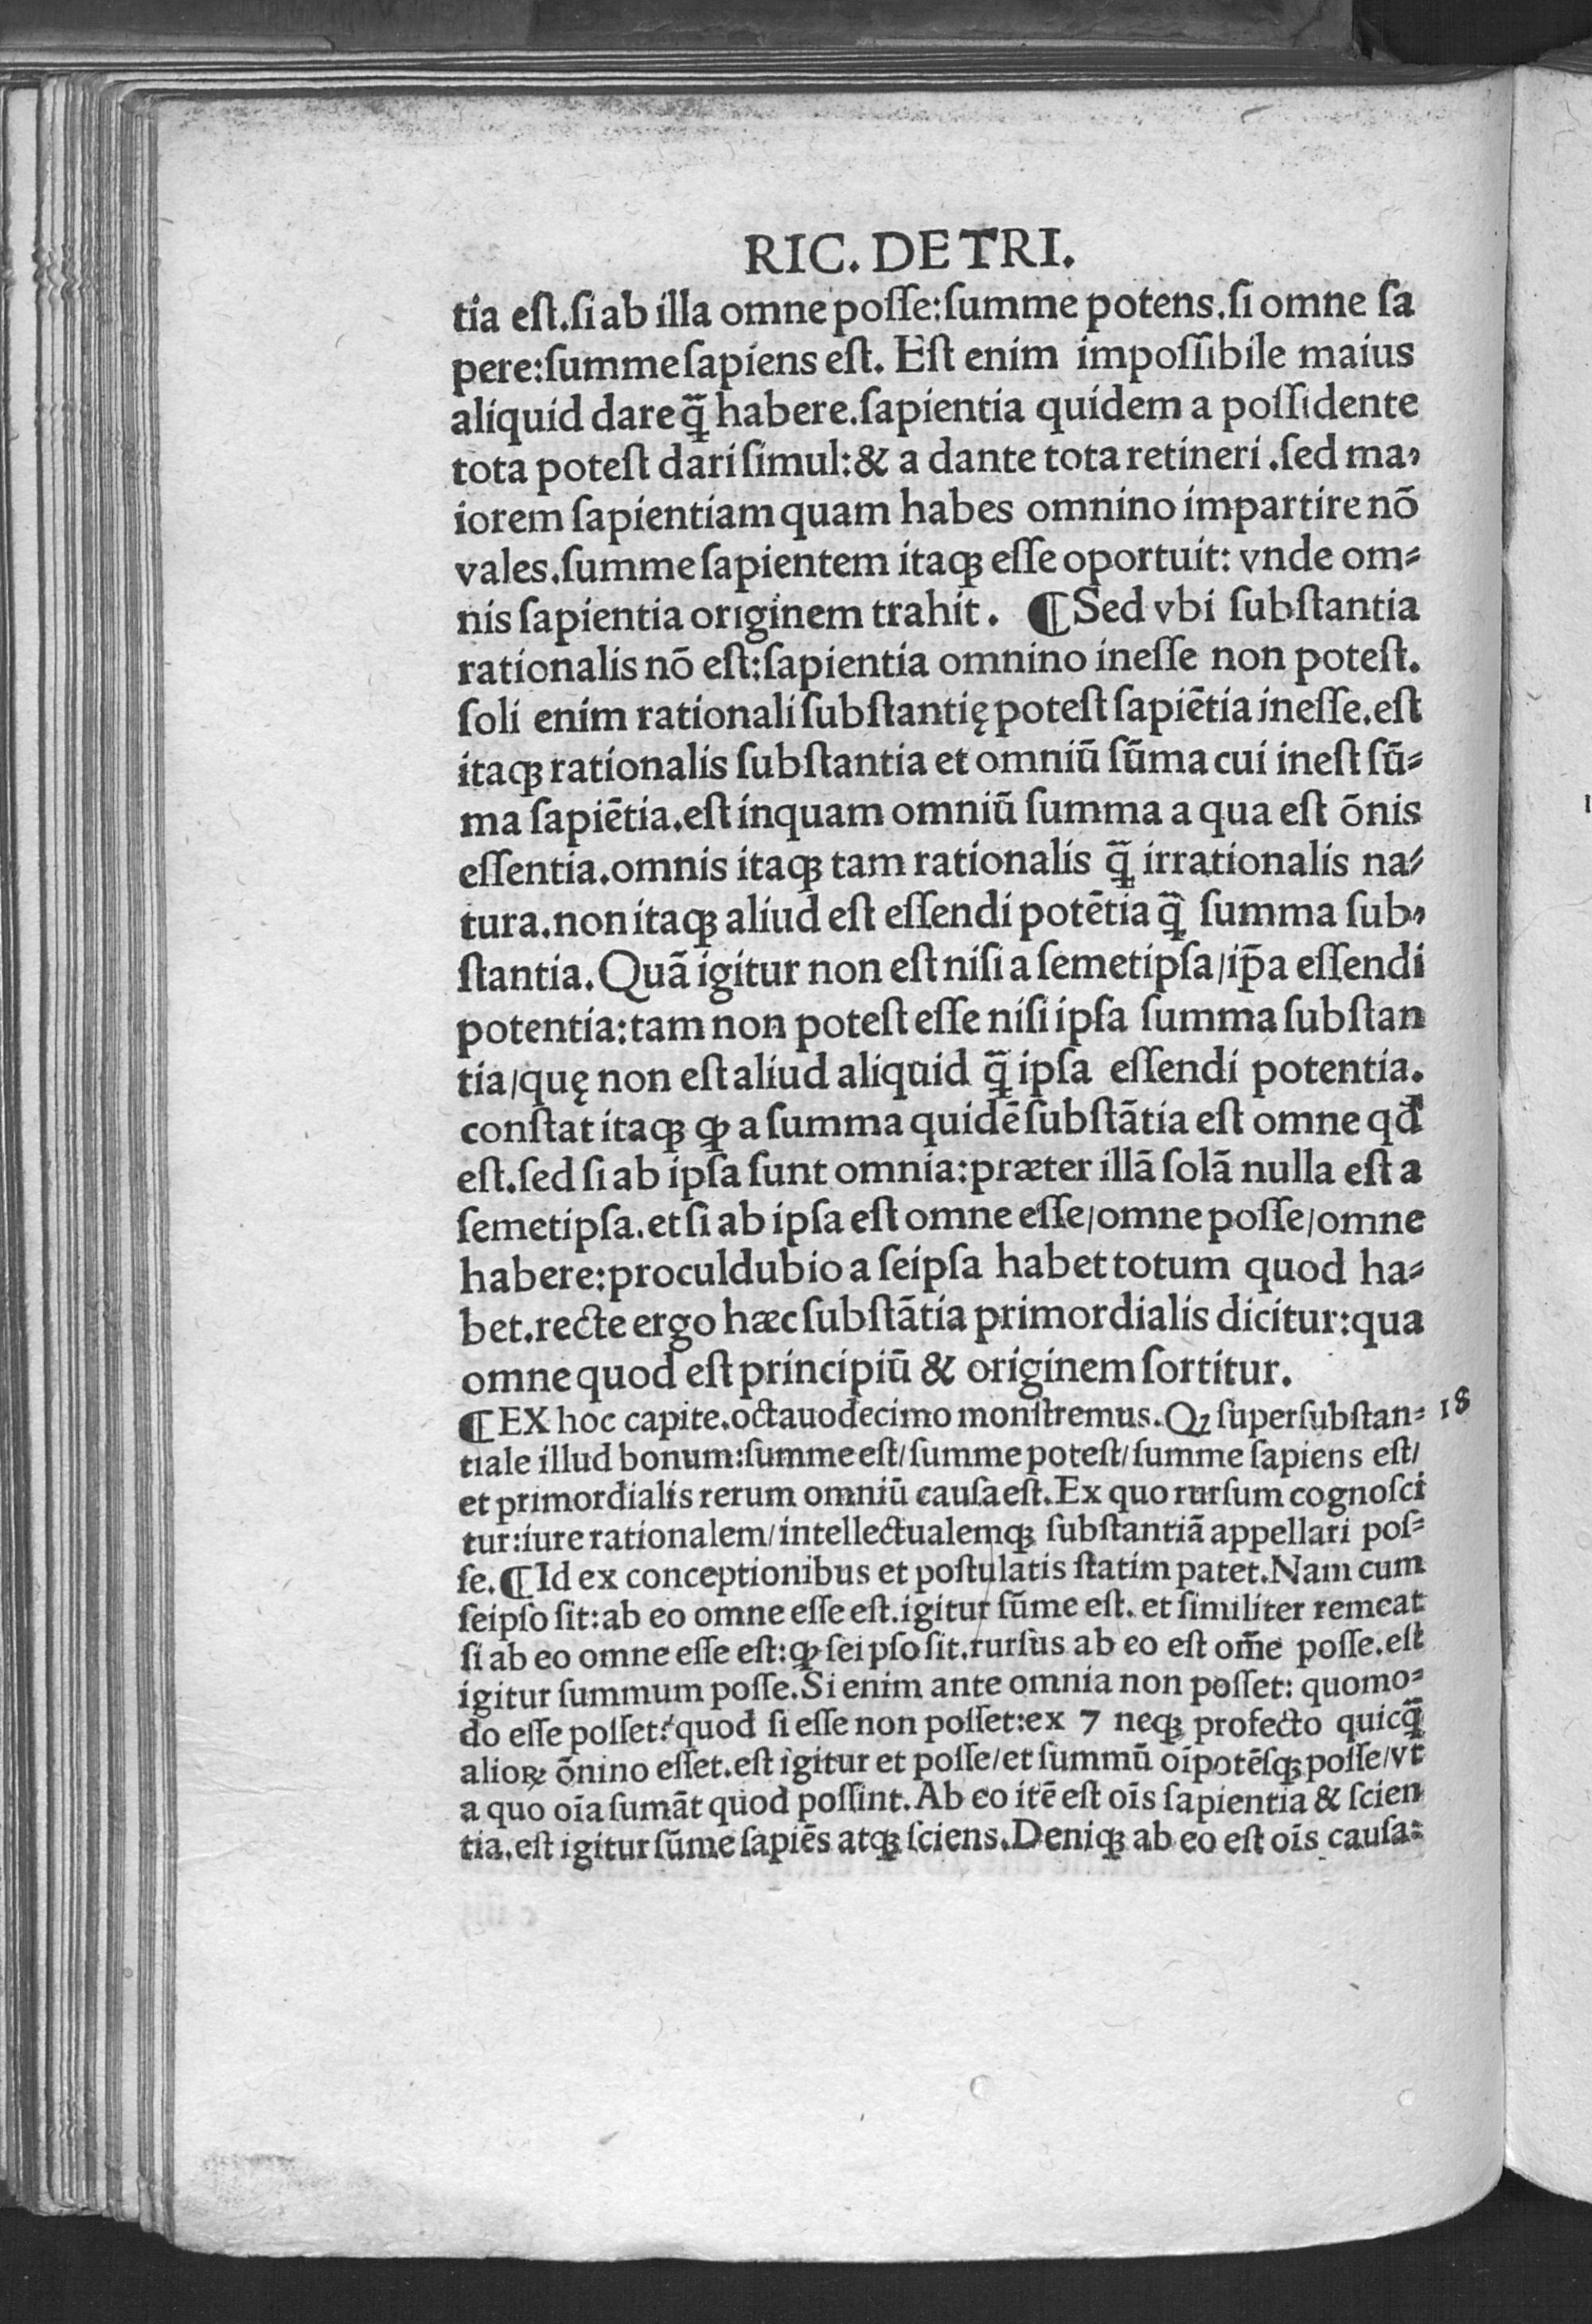 RIC. DE TRI.
tia eſt.ſi ab illa omne poſſe:ſumme potens.ſi omne ſa
pere:ſumme ſapiens eſt. Eſt enim impoſſibile maius
aliquid dare q̃ habere.ſapientia quidem a poſſidente
tota poteſt dari ſimul:& a dante tota retineri .ſed ma⸗
iorem ſapientiam quam habes omnino impartire nõ
vales.ſumme ſapientem itaqꝫ eſſe oportuit: vnde om⸗
nis ſapientia originem trahit. ¶Sed vbi ſubſtantia
rationalis nõ eſt:ſapientia omnino ineſſe non poteſt.
ſoli enim rationali ſubſtantię poteſt ſapiẽtia ineſſe.eſt
itaqꝫ rationalis ſubſtantia et omniũ ſũma cui ineſt ſũ⸗
ma ſapiẽtia.eſt inquam omniũ ſumma a qua eſt õnis
eſſentia.omnis itaqꝫ tam rationalis q̃ irrationalis na⸗
tura.non itaqꝫ aliud eſt eſſendi potẽtia q̃ ſumma ſub⸗
ſtantia.Quã igitur non eſt niſi a ſemetipſa/ip̃a eſſendi
potentia:tam non poteſt eſſe niſi ipſa ſumma ſubſtan
tia/quę non eſt aliud aliquid q̃ ipſa eſſendi potentia.
conſtat itaqꝫ ꝙ a ſumma quidẽ ſubſtãtia eſt omne qd̃
eſt.ſed ſi ab ipſa ſunt omnia:præter illã ſolã nulla eſt a
ſemetipſa.et ſi ab ipſa eſt omne eſſe/omne poſſe/omne
habere:proculdubio a ſeipſa habet totum quod ha⸗
bet.recte ergo hæc ſubſtãtia primordialis dicitur:qua
omne quod eſt principiũ & originem ſortitur.
¶EX hoc capite.octauodecimo monſtremus.Qꝫ ſuperſubſtan⸗ 18
tiale illud bonum:ſumme eſt/ſumme poteſt/ſumme ſapiens eſt/
et primordialis rerum omniũ cauſa eſt.Ex quo rurſum cognoſci
tur:iure rationalem/intellectualemqꝫ ſubſtantiã appellari poſ⸗
ſe.¶Id ex conceptionibus et poſtulatis ſtatim patet.Nam cum
ſeipſo ſit:ab eo omne eſſe eſt.igitur ſũme eſt. et ſimiliter remeat
ſi ab eo omne eſſe eſt:ꝙ ſeipſo ſit.rurſus ab eo eſt om̃e poſſe.eſt
igitur ſummum poſſe.Si enim ante omnia non poſſet: quomo⸗
do eſſe poſſet?quod ſi eſſe non poſſet:ex 7 neqꝫ profecto quicq̃
alioꝝ õnino eſſet.eſt igitur et poſſe/et ſummũ oĩpotẽſqꝫ poſſe/vt
a quo oĩa ſumãt quod poſſint.Ab eo itẽ eſt oĩs ſapientia & ſcien
tia.eſt igitur ſũme ſapiẽs atqꝫ ſciens.Deniqꝫ ab eo eſt oĩs cauſa: